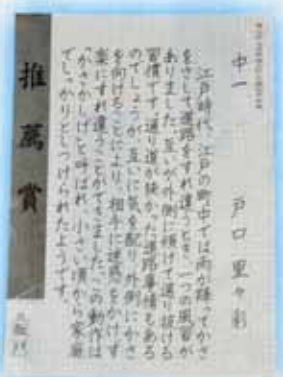 中一　戸口里々彩
江戸時代、江戸の町中では雨が降ってかさ
をさして道路をすれ違うとき、一つの風習が
ありました。互いが外側に傾けて通り抜ける
習慣です。通り道が狭かった道路事情もある
のでしょうが、互いに気を配り、外側にかさ
を向けることにより、相手に迷惑をかけず
楽にすれ違うことができました。この動作は
「かさかしげ」と呼ばれ、小さい頃から家庭
でしっかりとしつけられたようです。
推薦賞